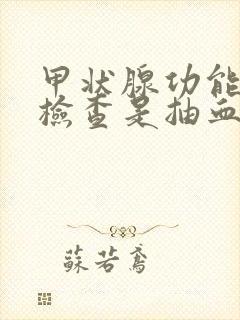 甲状腺功能
檢查是抽血
蘇若鳶